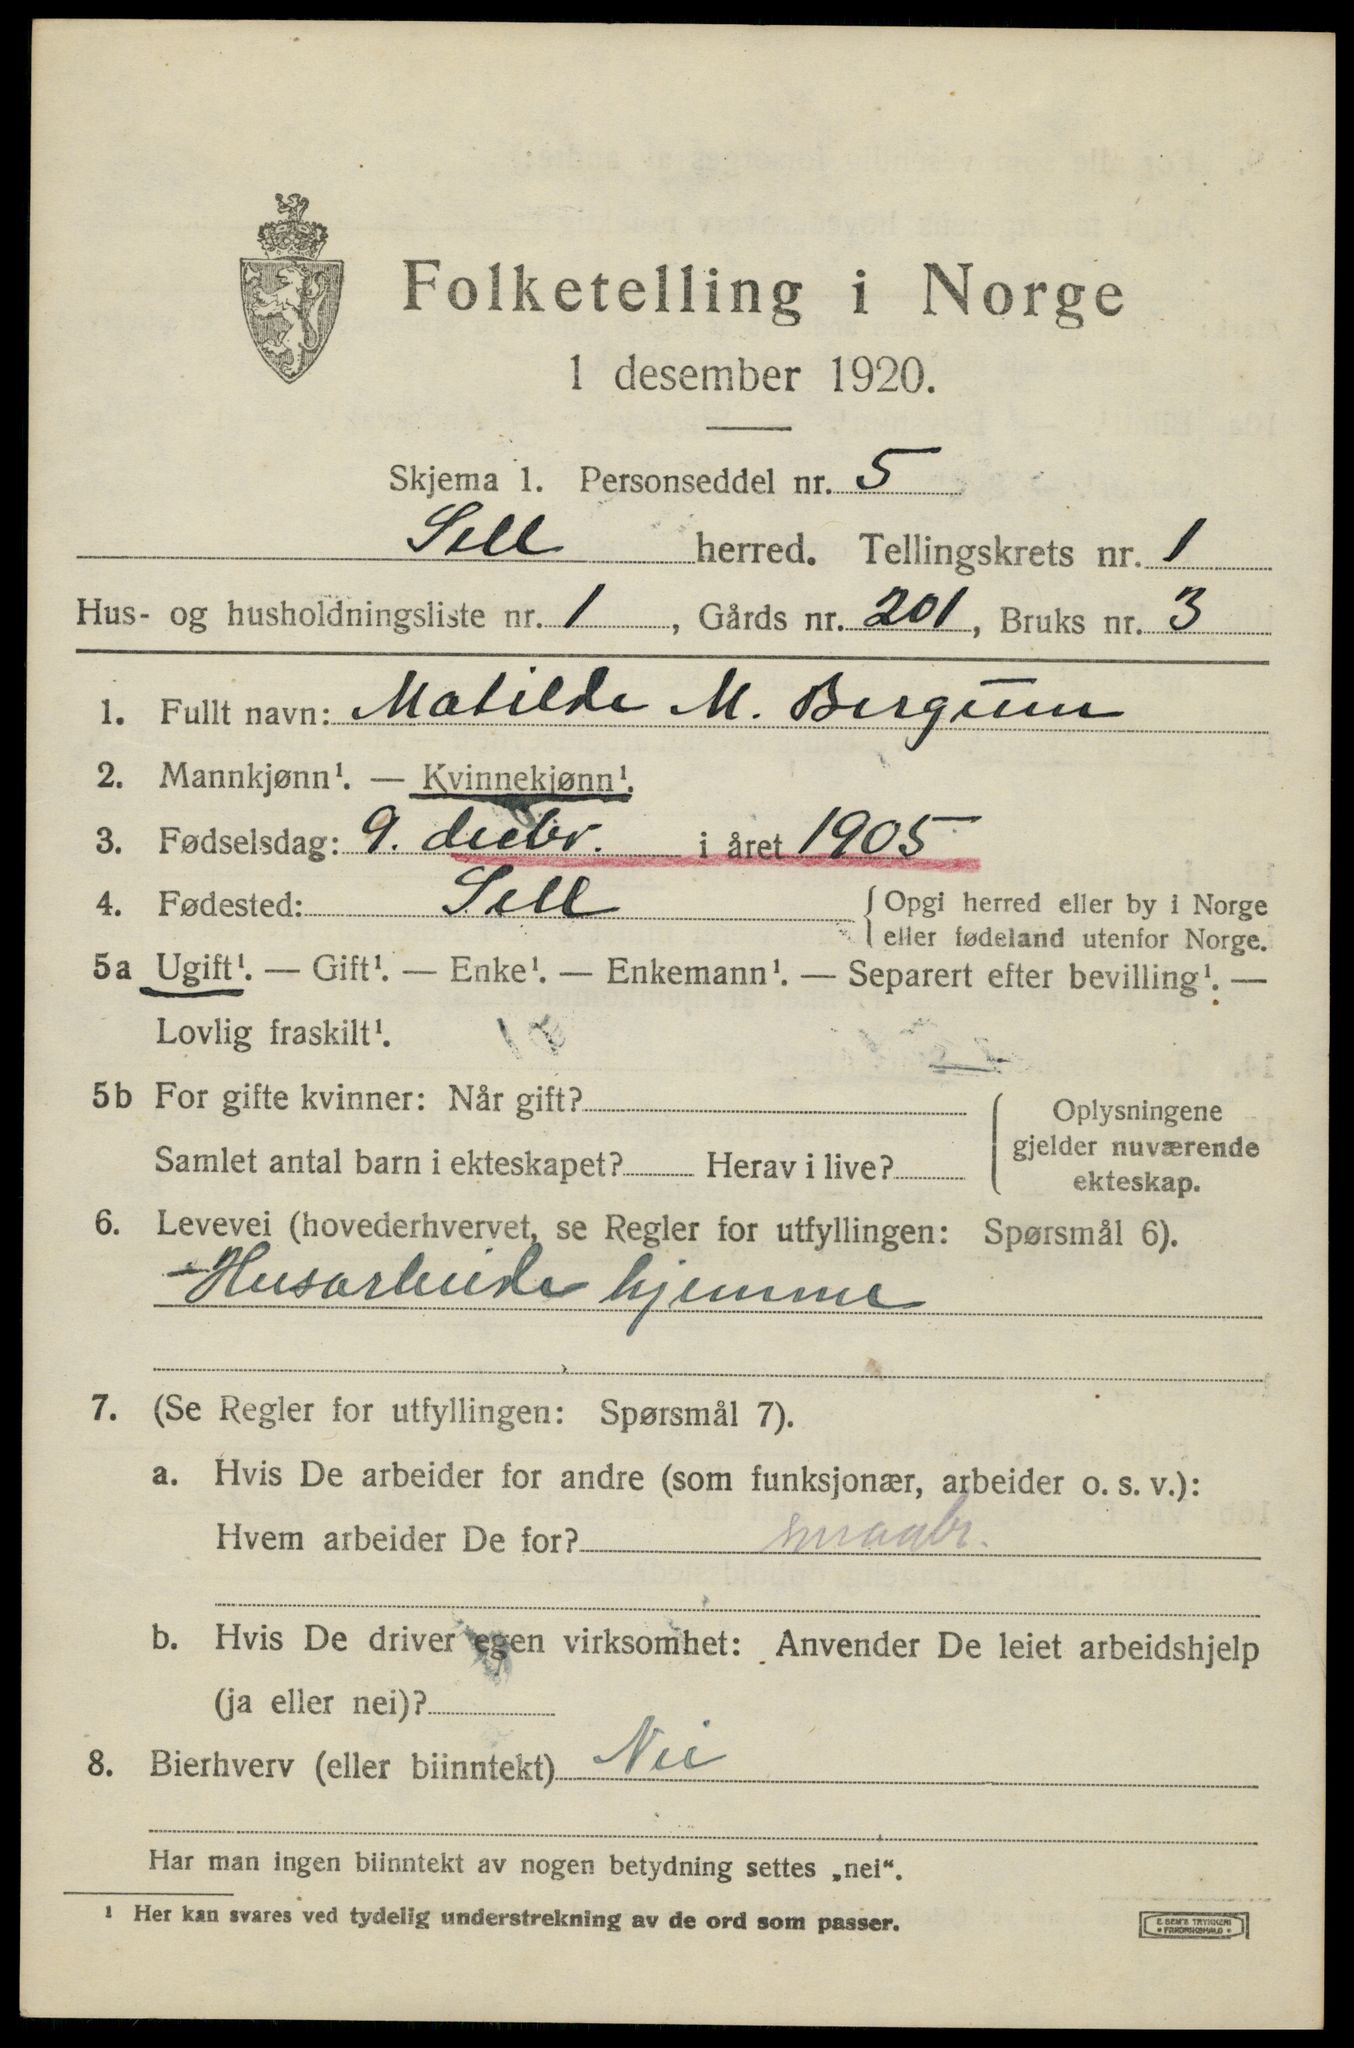 Folketelling i Norge
1 desember 1920.
Skjema 1. Personseddel nr. 5
Sell herred. Tellingskrets nr. 1
Hus- og husholdningsliste nr. 1, Gårds nr. 201, Bruks nr. 3
1. Fullt navn: Matilde M. Bergum
2. Mannkjønn¹. — Kvinnekjønn¹.
3. Fødselsdag: 9. decbr. i året 1905
4. Fødested: Sell {Opgi herred eller by i Norge
eller fødeland utenfor Norge.
5a Ugift¹. — Gift¹. — Enke¹. — Enkemann¹. — Separert efter bevilling¹. —
Lovlig fraskilt¹.
5b For gifte kvinner: Når gift?
Samlet antal barn i ekteskapet? Herav i live?
Oplysningene
gjelder nuværende
ekteskap.
6. Levevei (hovederhvervet, se Regler for utfyllingen: Spørsmål 6).
Husarbeide hjemme
7. (Se Regler for utfyllingen: Spørsmål 7).
a. Hvis De arbeider for andre (som funksjonær, arbeider o. s. v.):
Hvem arbeider De for? smaabr.
b. Hvis De driver egen virksomhet: Anvender De leiet arbeidshjelp
(ja eller nei)?
8. Bierhverv (eller biinntekt) Nei
Har man ingen biinntekt av nogen betydning settes „nei“.
¹ Her kan svares ved tydelig understrekning av de ord som passer.
E. SEM'S TRYKKERI
FREDRIKSHALD